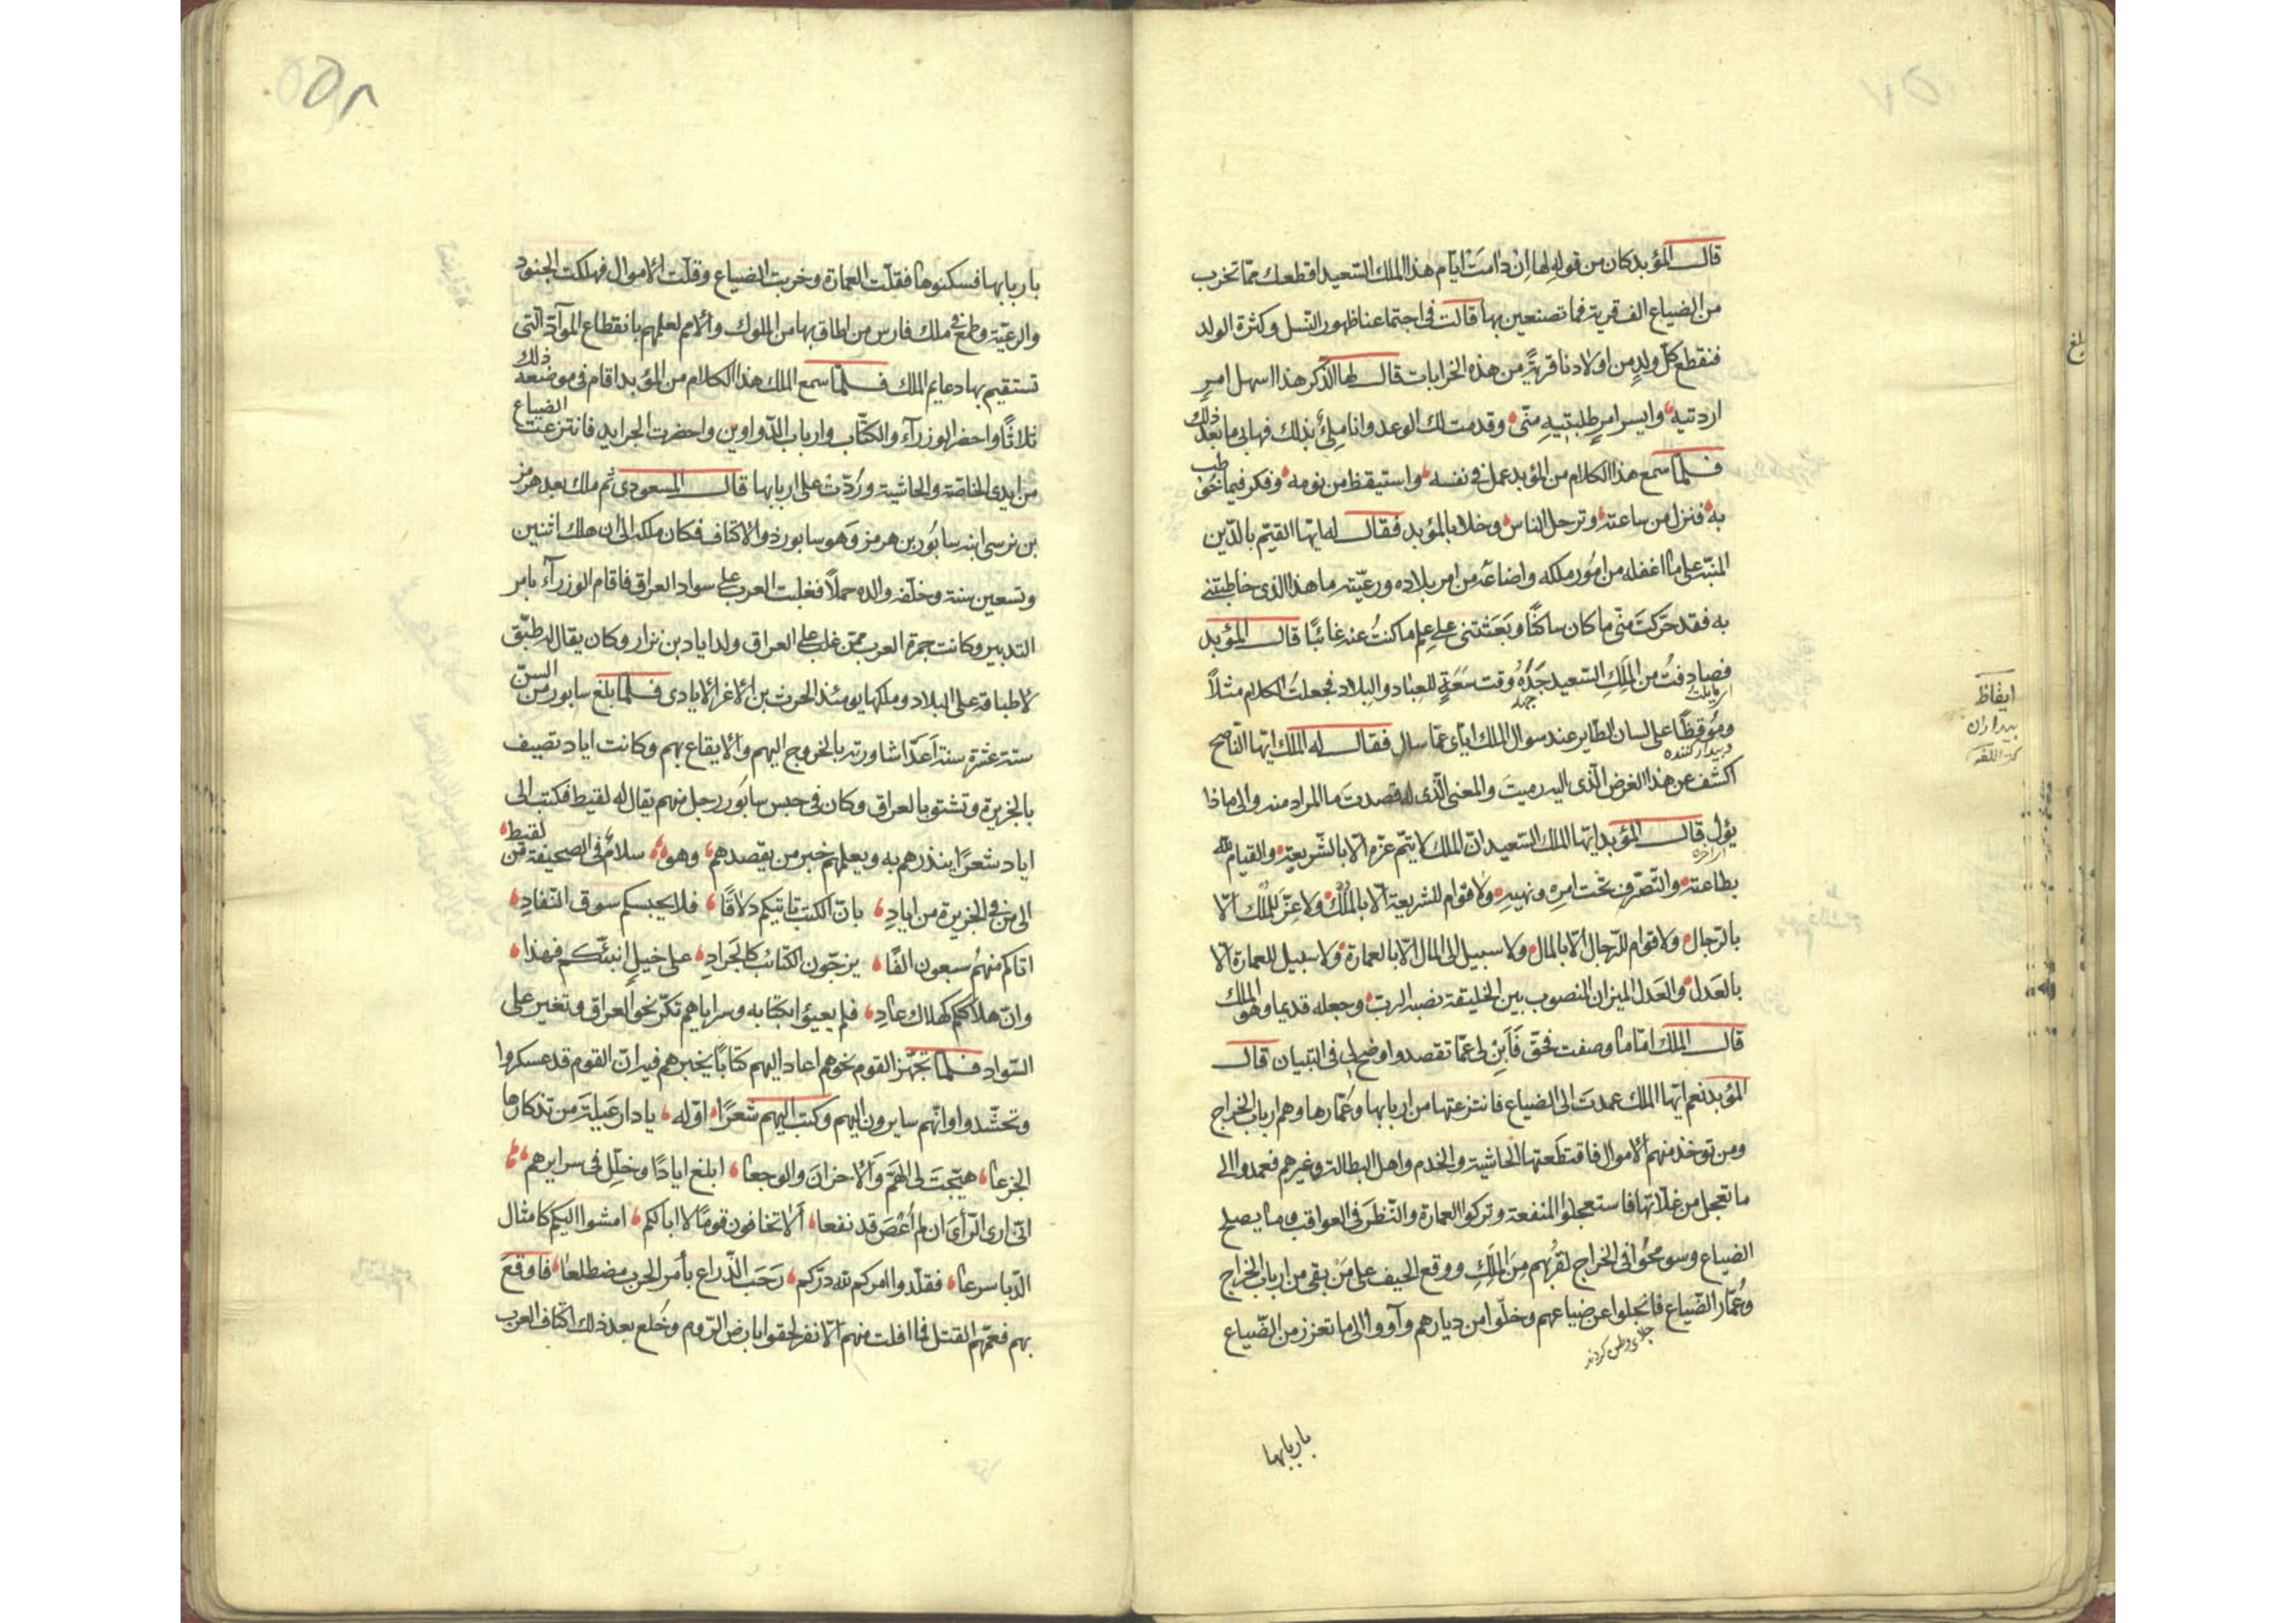 قال المؤبد كان من قوله لها ان دامت ايام هذا الملك السعيد اقطعك مما تخرب
من الضياع الف قرية فما تصنعين بها قالت في اجتماعنا ظهور النسل وكثرة الولد
فنقطع كل ولد من اولادنا قرية من هذه الخرابات قال لها الذكر هذا اسهل امر
اردتيه وايسر امر طلبتيه منى وقدمت لك الوعد وانا ملئ بذلك فهاتى ما بعد ذلك
فلما سمع هذا الكلام من المؤبد عمل في نفسه واستيقظ من نومه وفكر فيما خوطب
به فنزل من ساعته وترجل الناس وخلا بالمؤبد فقال له ايها القيم بالدين
المنبه على ما اغفله من امور ملكه واضاعه من امر بلاده ورعيته ما هذا الذى خاطبتنى
به فقد حركت منى ما كان ساكنا وبعثتنى على علم ما كنت عنه غائبا قال المؤبد
صادفت من الملك السعيد جده وقت سعة للعباد والبلاد فجعلت الكلام مثلا
وموقظا على لسان الطاير عند سوال الملك اياى عما سال فقال له الملك ايها الناصح
بيدار كننده
اكشف عن هذا الغرض الذى اليه رميت والمعنى الذى له قصدت ما المراد منه والى ماذا
يؤل قال المؤبد ايها الملك السعيد ان الملك لا يتم عزه الا بالشريعة والقيام لله
بطاعته والتصرف تحت امره ونهيه ولا قوام للشريعة الا بالملك ولا عز للملك الا
بالرجال ولا قوام للرجال الا بالمال ولا سبيل الى المال الا بالعمارة ولا سبيل للعمارة الا
بالعدل والعدل الميزان المنصوب بين الخليقة نصبه الرب وجعله قديما وهو الملك
قال الملك اما ما وصفت فحق فابن لى عما تقصد واوضح لى في التبيان قال
المؤبد نعم ايها الملك عمدت الى الضياع فانتزعتها من اربابها وعمارها وهم ارباب الخراج
ومن توخذ منهم الاموال فاقتطعتها الحاشية والخدم واهل البطالة وغيرهم فعمدوا الى
ما تعجل من غلاتها فاستعجلوا المنفعة وتركوا العمارة والنظر في العواقب وما يصلح
الضياع وسومحوا في الخراج لقربهم من الملك ووقع الحيف على من بقى من ارباب الخراج
وعمار الضياع فانجلوا عن ضياعهم وخلوا من ديارهم وآووا الى ما تعزز من الضياع
جلاى وطن كردند
باربابها
ايقاظ
بيداران
كنز اللغه
بلغ
۵۸
باربابها فسكنوها فقلت العمارة وخربت الضياع وقلت الاموال فهلكت الجنود
والرعية وطمع في ملك فارس من اطاف بها من الملوك والامم لعلمهم بانقطاع المواد التى
تستقيم بها دعايم الملك فلما سمع الملك هذا الكلام من المؤبد اقام في موضعه ذلك
ثلاثا واحضر الوزرآء والكتاب وارباب الدواوين واحضرت الجرايد فانتزعت الضياع
من ايدى الخاصة والحاشية وردت على اربابها قال المسعودى ثم ملك بعد هرمز
بن نرسى ابنه سابور بن هرمز وهو سابور ذو الاكتاف فكان ملكه الى ان هلك اثنين
وتسعين سنة وخلفه والده حملا فغلبت العرب على سواد العراق فاقام الوزرآء بامر
التدبير وكانت جمرة العرب ممن غلب على العراق ولد اياد بن نزار وكان يقال له طبق
لاطباقه على البلاد وملكها يومئذ الحرث بن الاغر الايادى فلما بلغ سابور من السن
ستة عشرة سنة اعد اشاورته بالخروج اليهم والايقاع بهم وكانت اياد تصيف
بالجزيرة وتشتو بالعراق وكان في حبس سابور رجل منهم يقال له لقيط فكتب الى
اياد شعرا ينذرهم به ويعلمهم خبر من يقصدهم وهو سلام في الصحيفة من لقيط
الى من في الجزيرة من اياد بان الكتب تاتيكم دلاقا فلا يحبسكم سوق النقاد
اتاكم منهم سبعون الفا يزجون الكتائب كالجراد على خيل انبئكم فهذا
وان هلاككم كهلاك عاد فلم يعبؤا بكتابه وسراياهم تكر نحو العراق وتغير على
السواد فلما تجهز القوم نحوهم اعاد اليهم كتابا يخبرهم فيه ان القوم قد عسكروا
وتحشدوا وانهم سايرون اليهم وكتب اليهم شعرا اوله يا دار عبلة من تذكارها
الجزعا هيجت لى الهم والاحزان والوجعا ابلغ ايادا وخلل في سرايرهم
انى ارى الرأى ان لم اعص قد نفعا الا تخافون قوما لا ابالكم امشوا اليكم كامثال
الدبا سرعا فقلدوا امركم لله دركم رحب الذراع بأمر الحرب مضطلعا فاوقع
بهم فعمهم القتل فما افلت منهم الا نفر لحقوا بارض الروم وخلع بعد ذلك اكتاف العرب